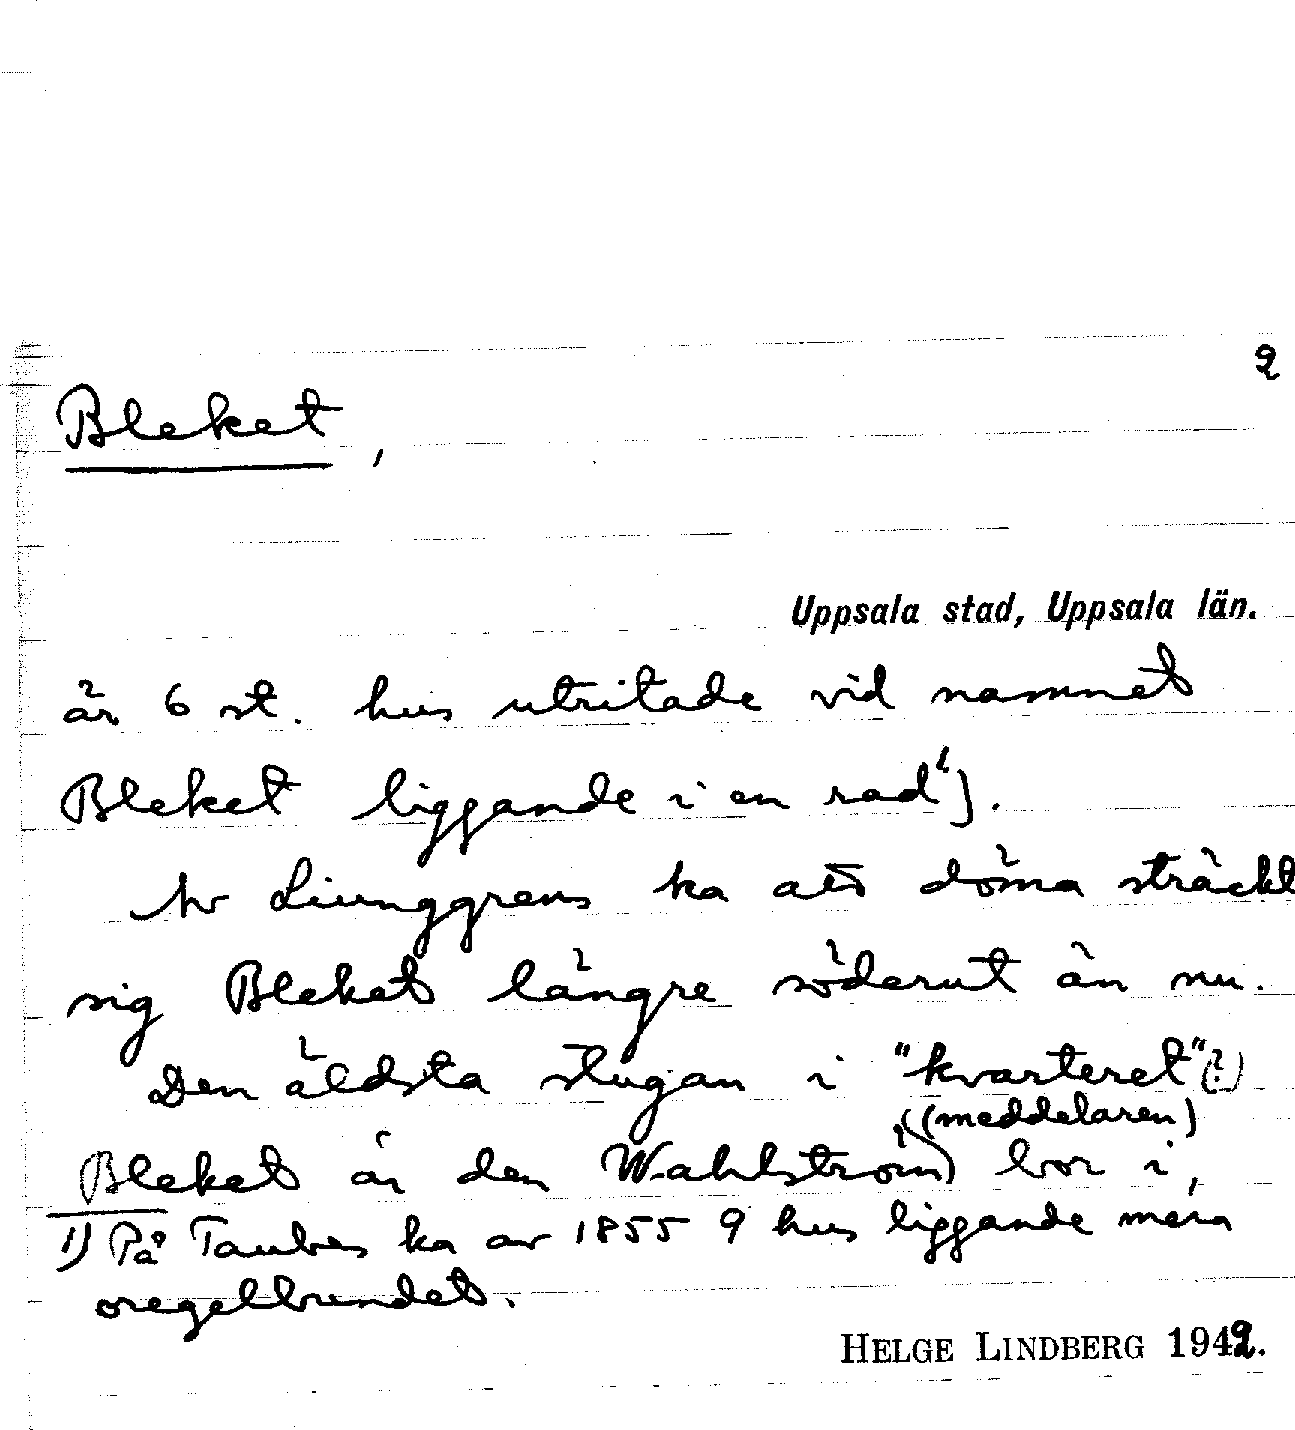 2
Bleket,
Uppsala stad, Uppsala län.
är 6 st. hus utritade vid namnet
Bleket liggande i en rad¹).
Av Liunggrens ka att döma sträckt
sig Bleket längre söderut än nu.
Den äldsta stugan i "kvarteret"(?)
((meddelaren)
Bleket är den Wahlström) bor i,
1) På Taubes ka av 1855 9 hus liggande mera
oregelbundet.
HELGE LINDBERG 1942.